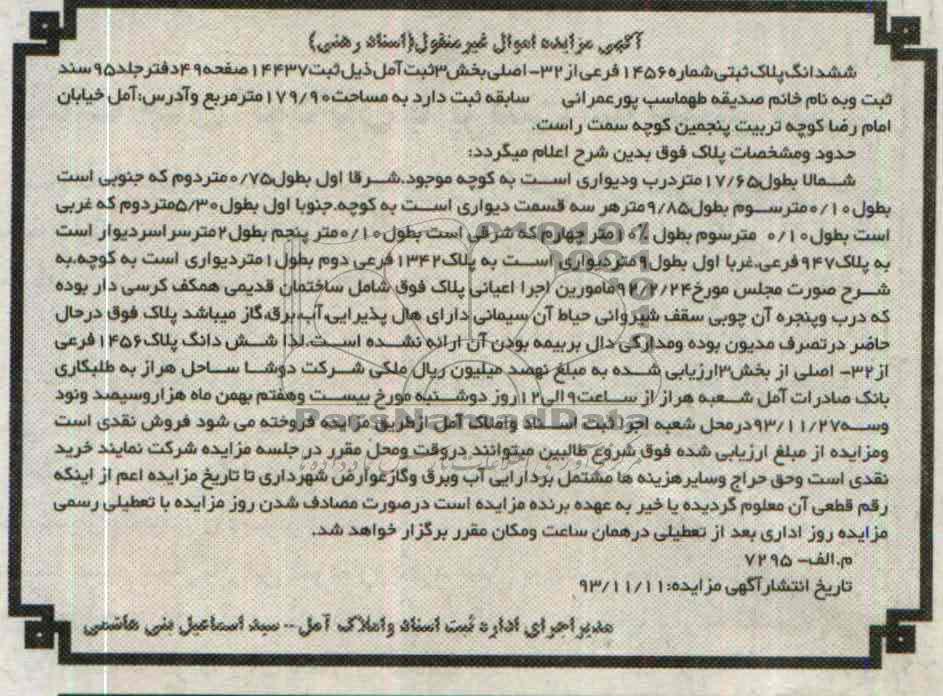 آگهی مزایده اموال غیرمنقول(اسناد رهنی)
ششدانگ پلاک ثبتی شماره ۱۴۵۶ فرعی از ۳۲- اصلی بخش ۳ ثبت آمل ذیل ثبت ۱۴۴۳۷ صفحه ۴۹ دفتر جلد ۹۵ سند
ثبت وبه نام خانم صدیقه طهماسب پورعمرانی سابقه ثبت دارد به مساحت ۱۷۹/۹۰ مترمربع وآدرس:آمل خیابان
امام رضا کوچه تربیت پنجمین کوچه سمت راست.
حدود ومشخصات پلاک فوق بدین شرح اعلام میگردد:
شمالا بطول ۱۷/۶۵ متردرب ودیواری است به کوچه موجود.شرقا اول بطول ۰/۷۵ متردوم که جنوبی است
بطول ۰/۱۰ مترسوم بطول ۹/۸۵ مترهر سه قسمت دیواری است به کوچه.جنوبا اول بطول ۵/۳۰ متردوم که غربی
است بطول ۰/۱۰ مترسوم بطول ۱۰/۱ متر چهارم که شرقی است بطول ۰/۱۰ متر پنجم بطول ۲ مترسراسردیوار است
به پلاک ۹۴۷ فرعی.غربا اول بطول ۹ متردیواری است به پلاک ۱۳۴۲ فرعی دوم بطول ۱ متردیواری است به کوچه.به
شرح صورت مجلس مورخ ۹۲/۲/۲۴ مامورین اجرا اعیانی پلاک فوق شامل ساختمان قدیمی همکف کرسی دار بوده
که درب وپنجره آن چوبی سقف شیروانی حیاط آن سیمانی دارای هال پذیرایی،آب،برق،گاز میباشد پلاک فوق درحال
حاضر درتصرف مدیون بوده ومدارکی دال بربیمه بودن آن ارائه نشده است.لذا شش دانگ پلاک ۱۴۵۶ فرعی
از ۳۲- اصلی از بخش ۳ ارزیابی شده به مبلغ نهصد میلیون ریال ملکی شرکت دوشا ساحل هراز به طلبکاری
بانک صادرات آمل شعبه هراز از ساعت ۹ الی ۱۲ روز دوشنبه مورخ بیست وهفتم بهمن ماه هزاروسیصد ونود
وسه ۹۳/۱۱/۲۷ درمحل شعبه اجرا ثبت اسناد واملاک آمل ازطریق مزایده فروخته می شود فروش نقدی است
ومزایده از مبلغ ارزیابی شده فوق شروع طالبین میتوانند دروقت ومحل مقرر در جلسه مزایده شرکت نمایند خرید
نقدی است وحق حراج وسایرهزینه ها مشتمل بردارایی آب وبرق وگازعوارض شهرداری تا تاریخ مزایده اعم از اینکه
رقم قطعی آن معلوم گردیده یا خیر به عهده برنده مزایده است درصورت مصادف شدن روز مزایده با تعطیلی رسمی
مزایده روز اداری بعد از تعطیلی درهمان ساعت ومکان مقرر برگزار خواهد شد.
م.الف- ۷۲۹۵
تاریخ انتشارآگهی مزایده:۹۳/۱۱/۱۱
مدیراجرای اداره ثبت اسناد واملاک آمل -- سید اسماعیل بنی هاشمی
ParsNamadData